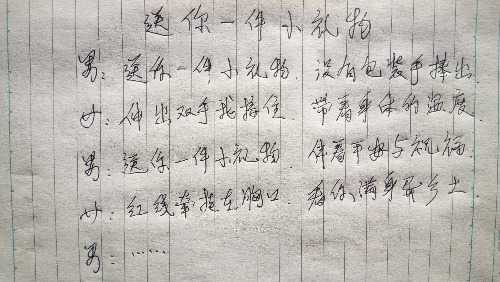 送你一件小礼物
男：送你一件小礼物 没有包装手捧出
女：伸出双手我接住 带着身体的温度
男：送你一件小礼物 伴着平安与祝福
女：红线牵挂在胸口 看你满身是乡土
男：……